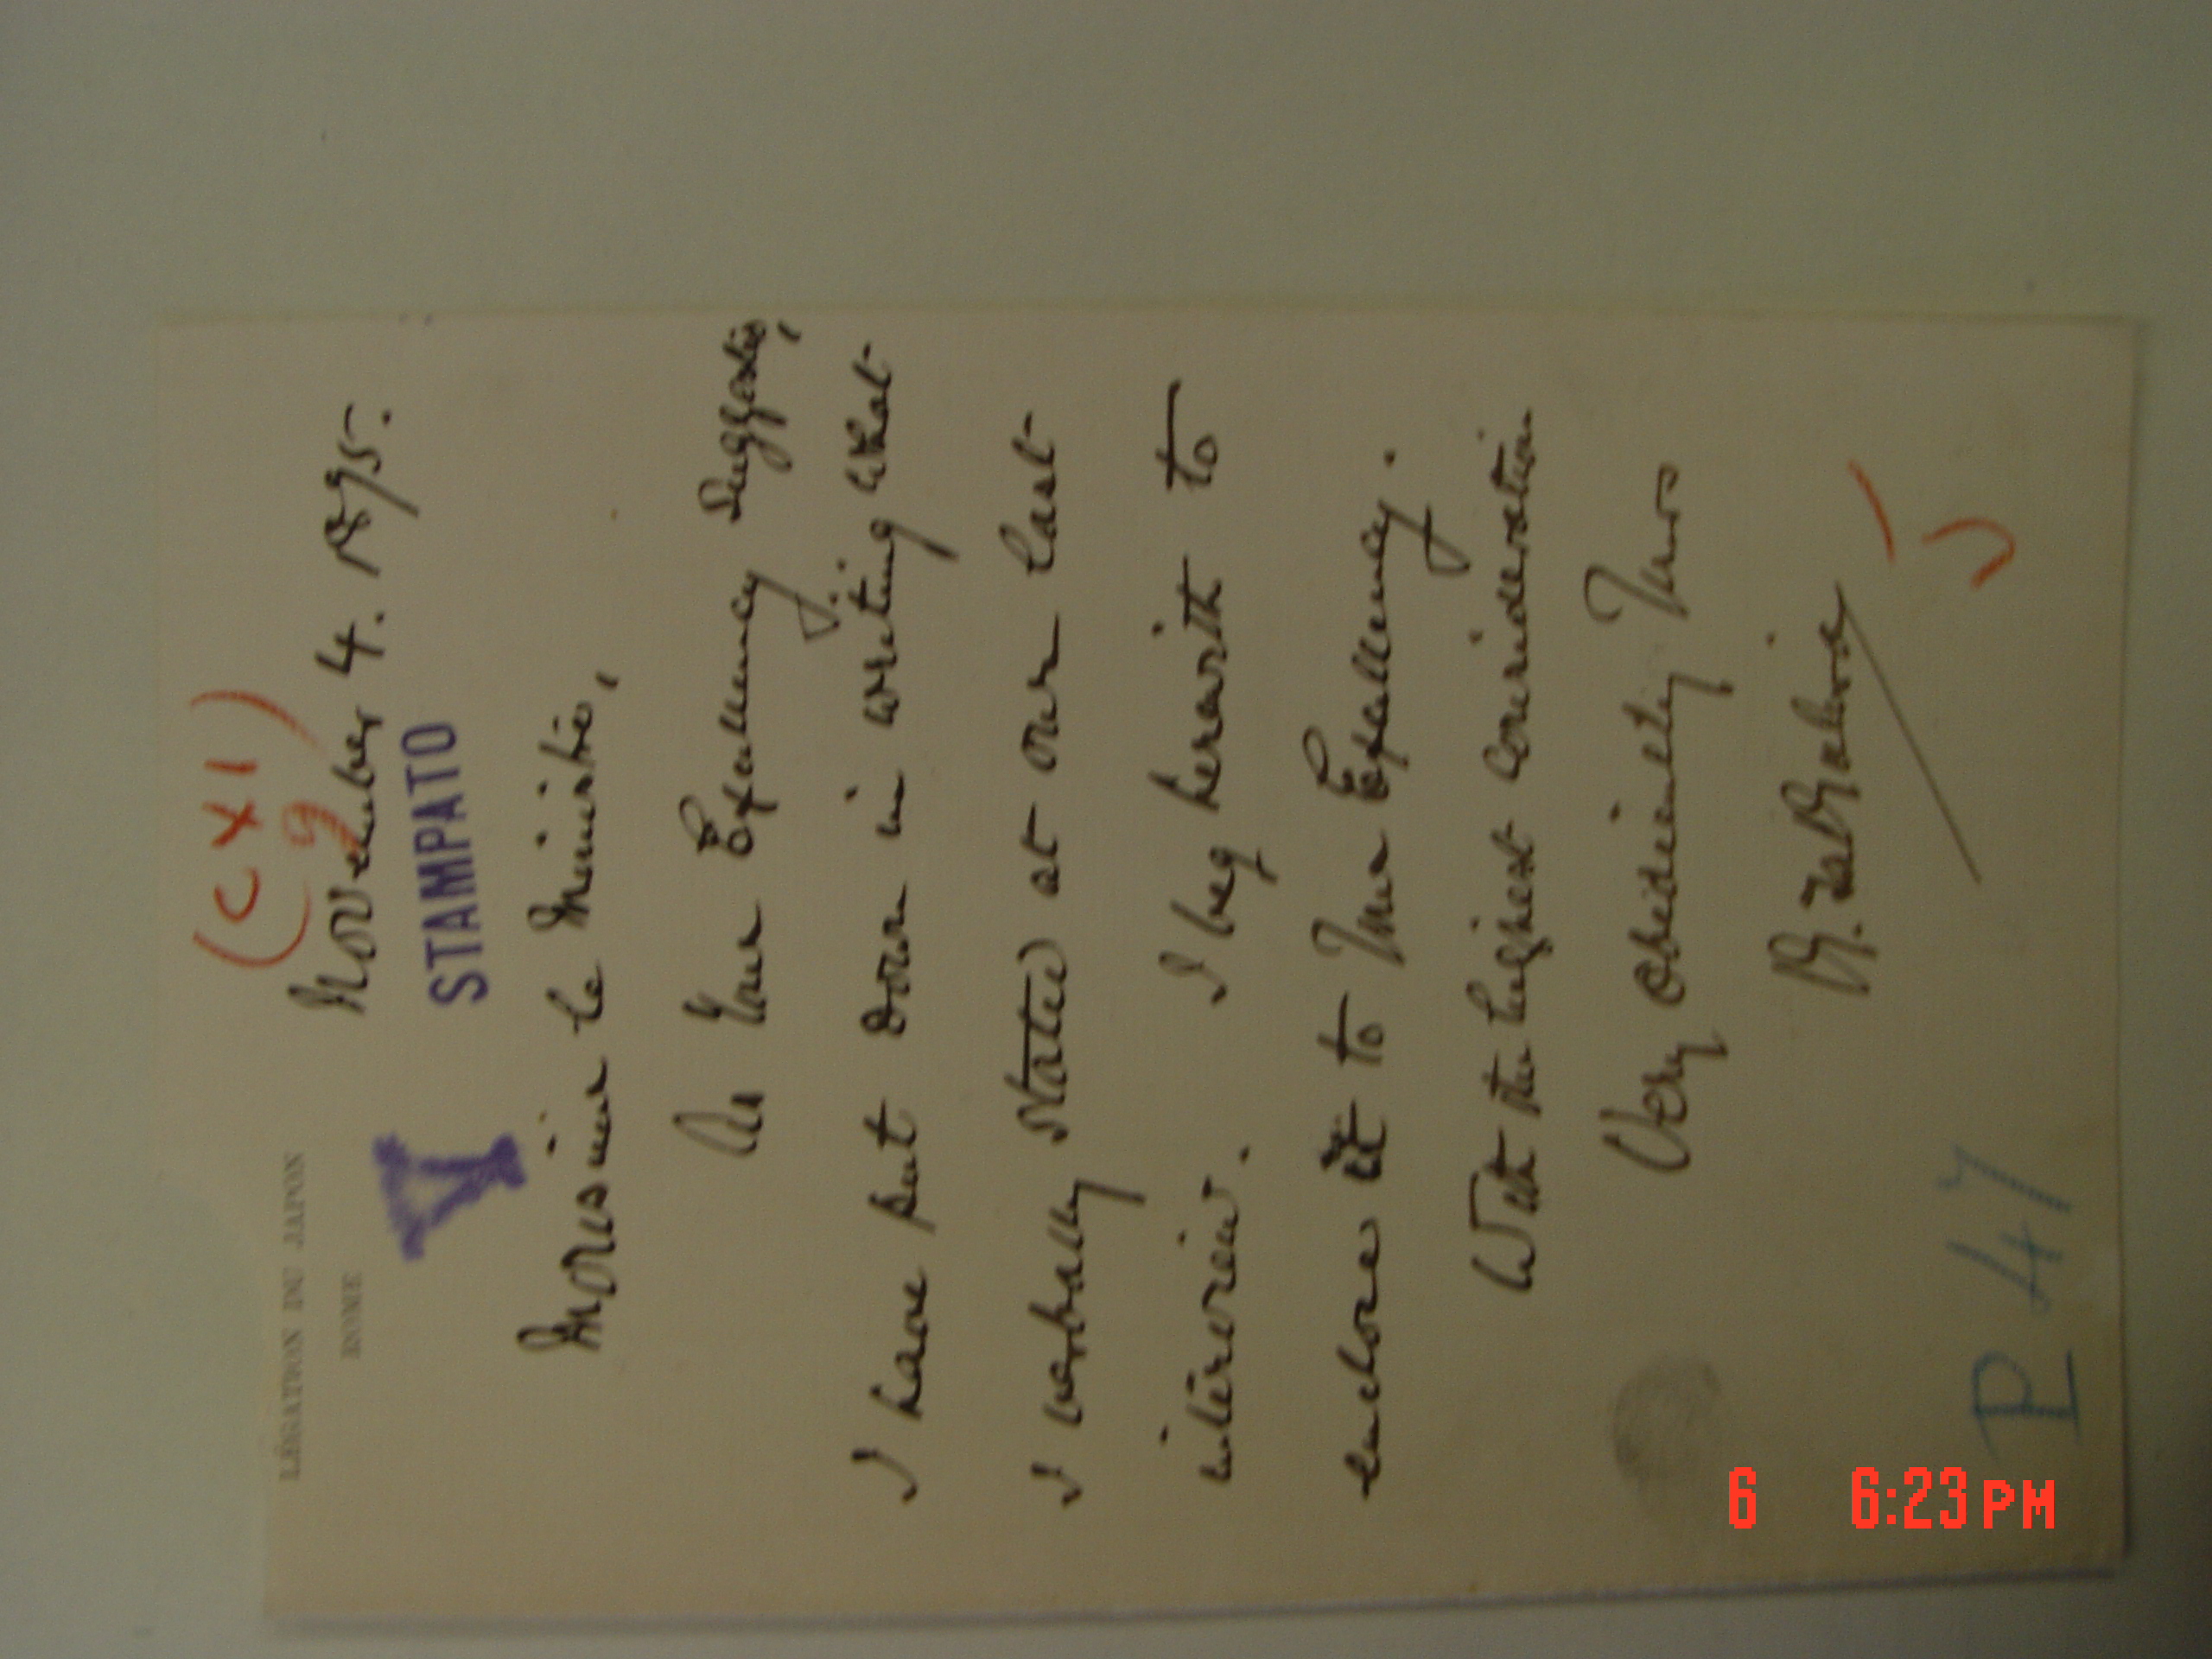 LÉGATION DU JAPON
ROME
(CXI)
9
November 4. 1895.
STAMPATO
Monsieur le Ministre,
As Your Excellency suggests,
I have put down in writing what
I verbally stated at our last
interview. I beg herewith to
enclose it to Your Excellency.
With the highest consideration
Very obediently Yours
P 47
6 6:23 PM